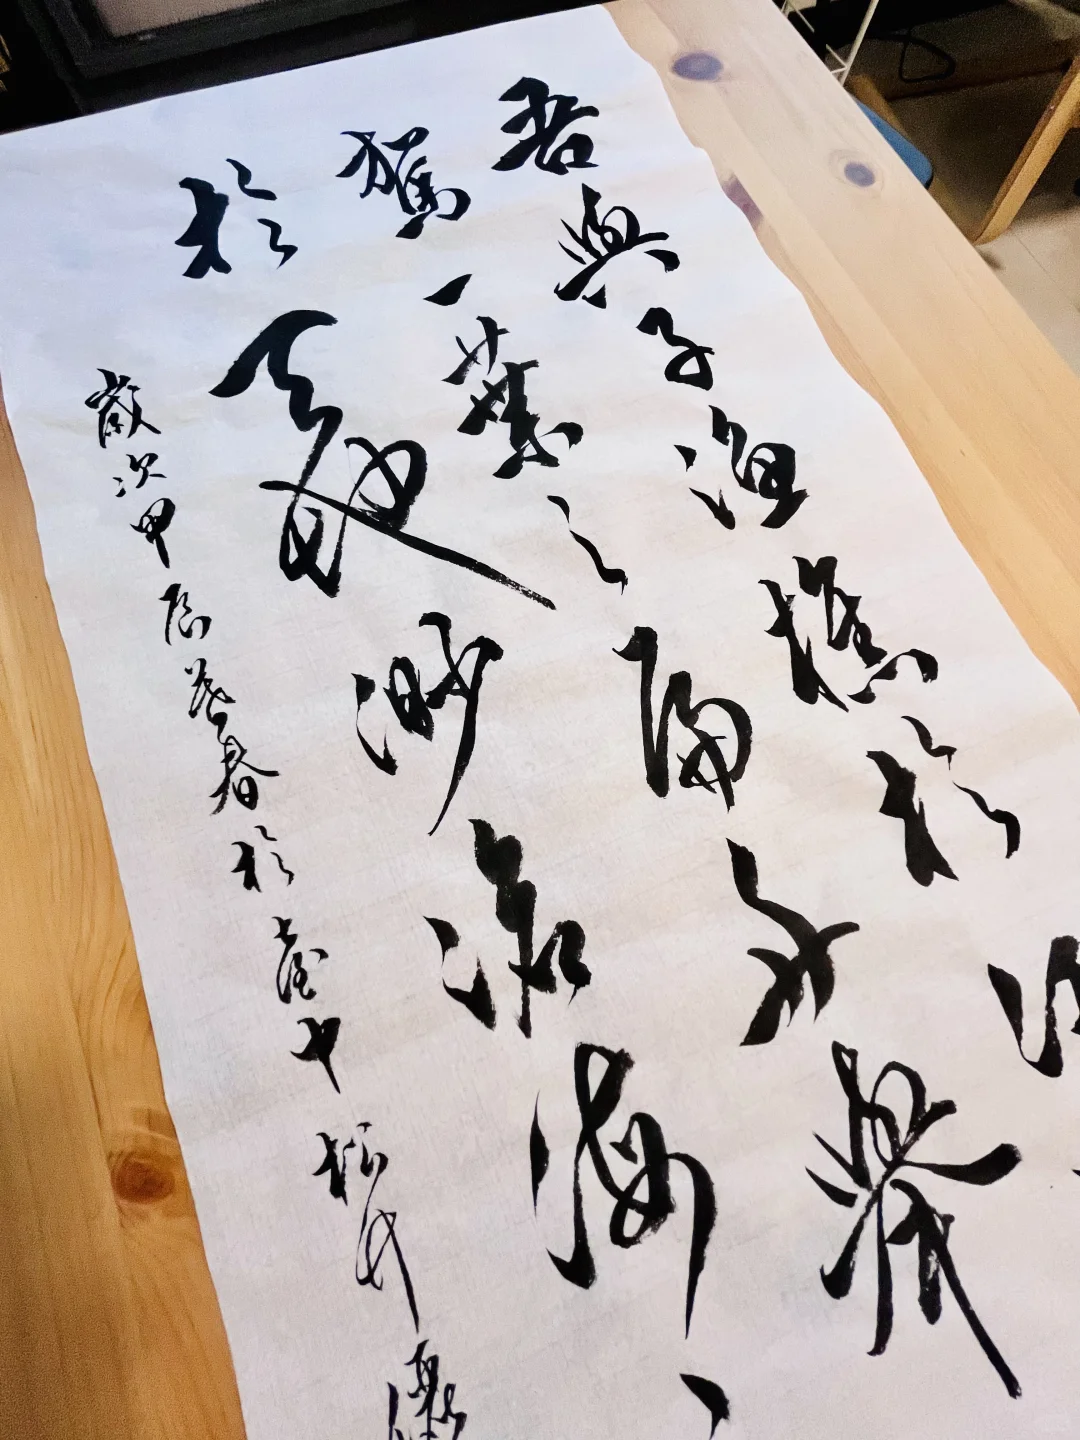 吾與子漁樵於
駕一葉之扁舟舉
於天地渺滄海
歲次甲辰暮春於臺中